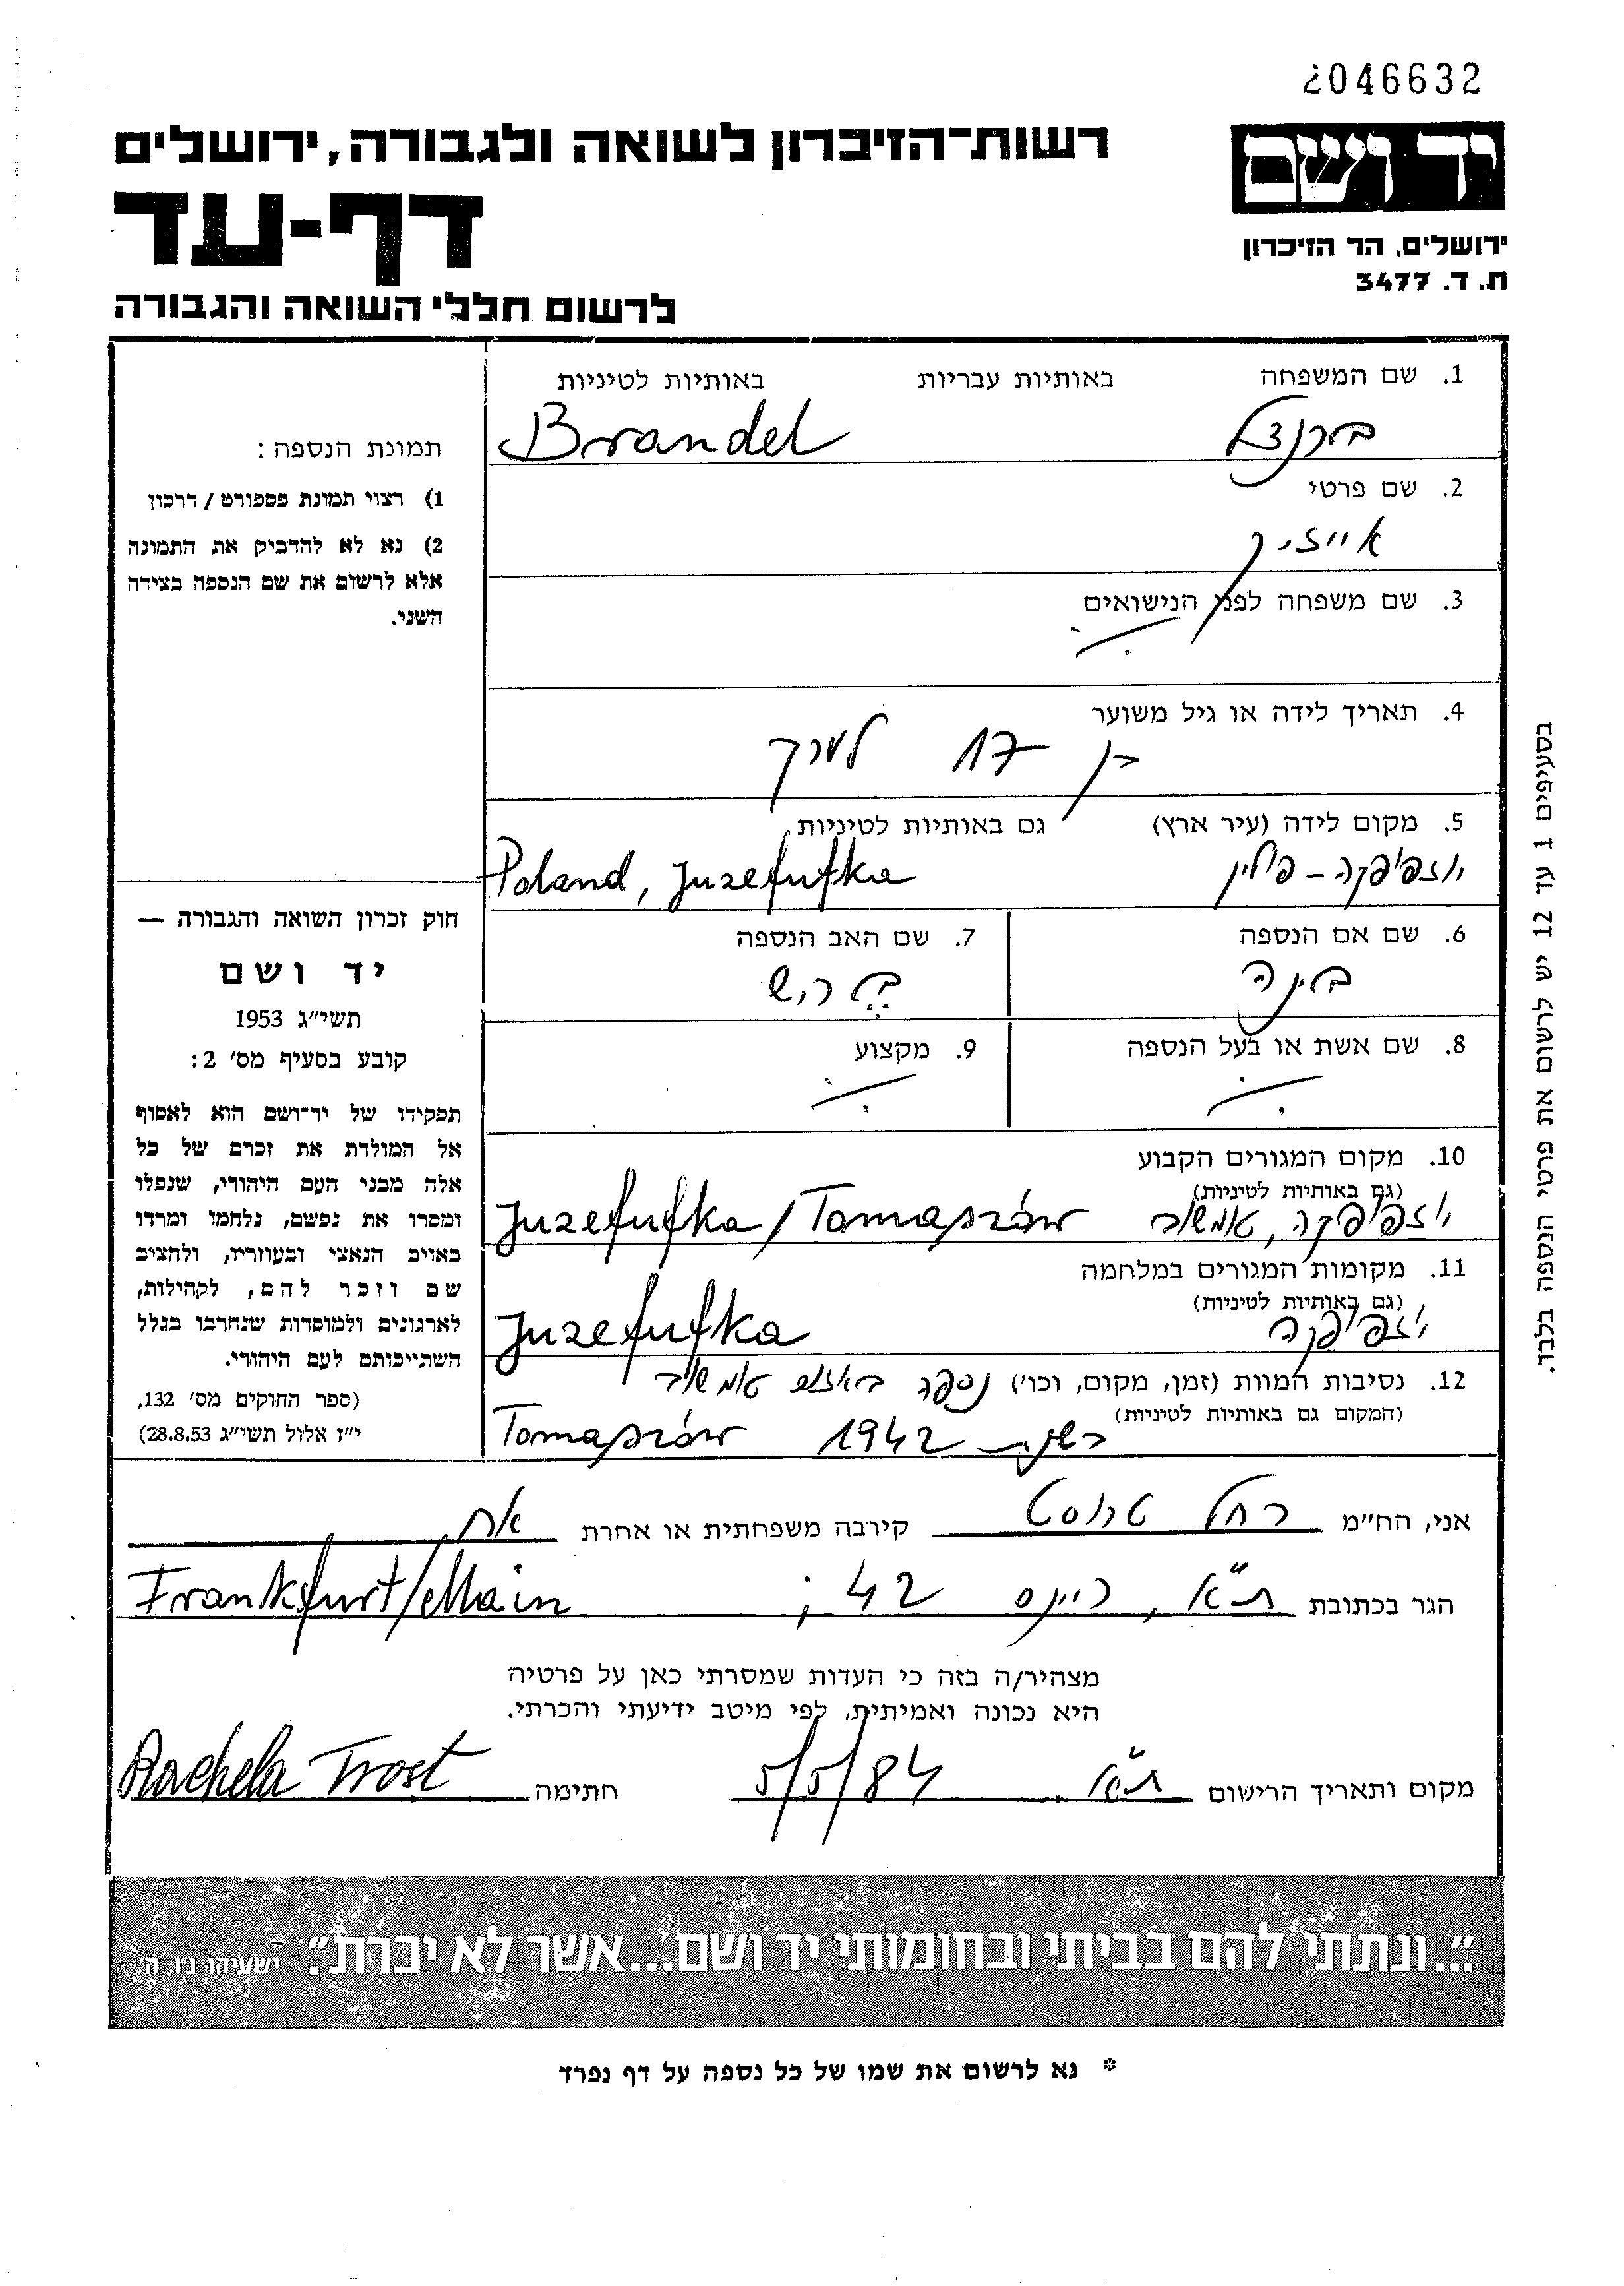 2046632
יד ושם
ירושלים, הר הזיכרון
ת. ד. 3477
רשות-הזיכרון לשואה ולגבורה, ירושלים
דף-עד
לרשום חללי השואה והגבורה
1. שם המשפחה באותיות עבריות באותיות לטיניות
ברנדל Brandel
2. שם פרטי
אייזיק
3. שם משפחה לפני הנישואים
4. תאריך לידה או גיל משוער
בן 17 לערך
5. מקום לידה (עיר ארץ) גם באותיות לטיניות
יוזפיפקה - פולין Poland, Juzefufka
6. שם אם הנספה 7. שם האב הנספה
בינה
8. שם אשת או בעל הנספה 9. מקצוע
10. מקום המגורים הקבוע
(גם באותיות לטיניות)
יוזפיפקה, טומשוב Juzefufka/Tomaszów
11. מקומות המגורים במלחמה
(גם באותיות לטיניות)
יוזפיפקה Juzefufka
12. נסיבות המוות (זמן, מקום, וכו') נספה באזור טומשוב
(המקום גם באותיות לטיניות)
בשנת 1942 Tomaszów
תמונת הנספה:
1) רצוי תמונת פספורט / דרכון
2) נא לא להדביק את התמונה
אלא לרשום את שם הנספה בצידה
השני.
חוק זכרון השואה והגבורה —
יד ושם
תשי"ג 1953
קובע בסעיף מס' 2:
תפקידו של יד-ושם הוא לאסוף
אל המולדת את זכרם של כל
אלה מבני העם היהודי, שנפלו
ומסרו את נפשם, נלחמו ומרדו
באויב הנאצי ובעוזריו, ולהציב
שם וזכר להם, לקהילות,
לארגונים ולמוסדות שנחרבו בגלל
השתייכותם לעם היהודי.
(ספר החוקים מס' 132,
י"ז אלול תשי"ג 28.8.53)
בסעיפים 1 עד 12 יש לרשום את פרטי הנספה בלבד.
אני, הח"מ רחל טרוסט קירבה משפחתית או אחרת אח
הגר בכתובת ת"א, ריינס 42; Frankfurt/Main
מצהיר/ה בזה כי העדות שמסרתי כאן על פרטיה
היא נכונה ואמיתית, לפי מיטב ידיעתי והכרתי.
מקום ותאריך הרישום ת"א 5/5/84 חתימה Rachela Trost
"...ונתתי להם בביתי ובחומותי יד ושם...אשר לא יכרת". ישעיהו נ"ו, ה
* נא לרשום את שמו של כל נספה על דף נפרד